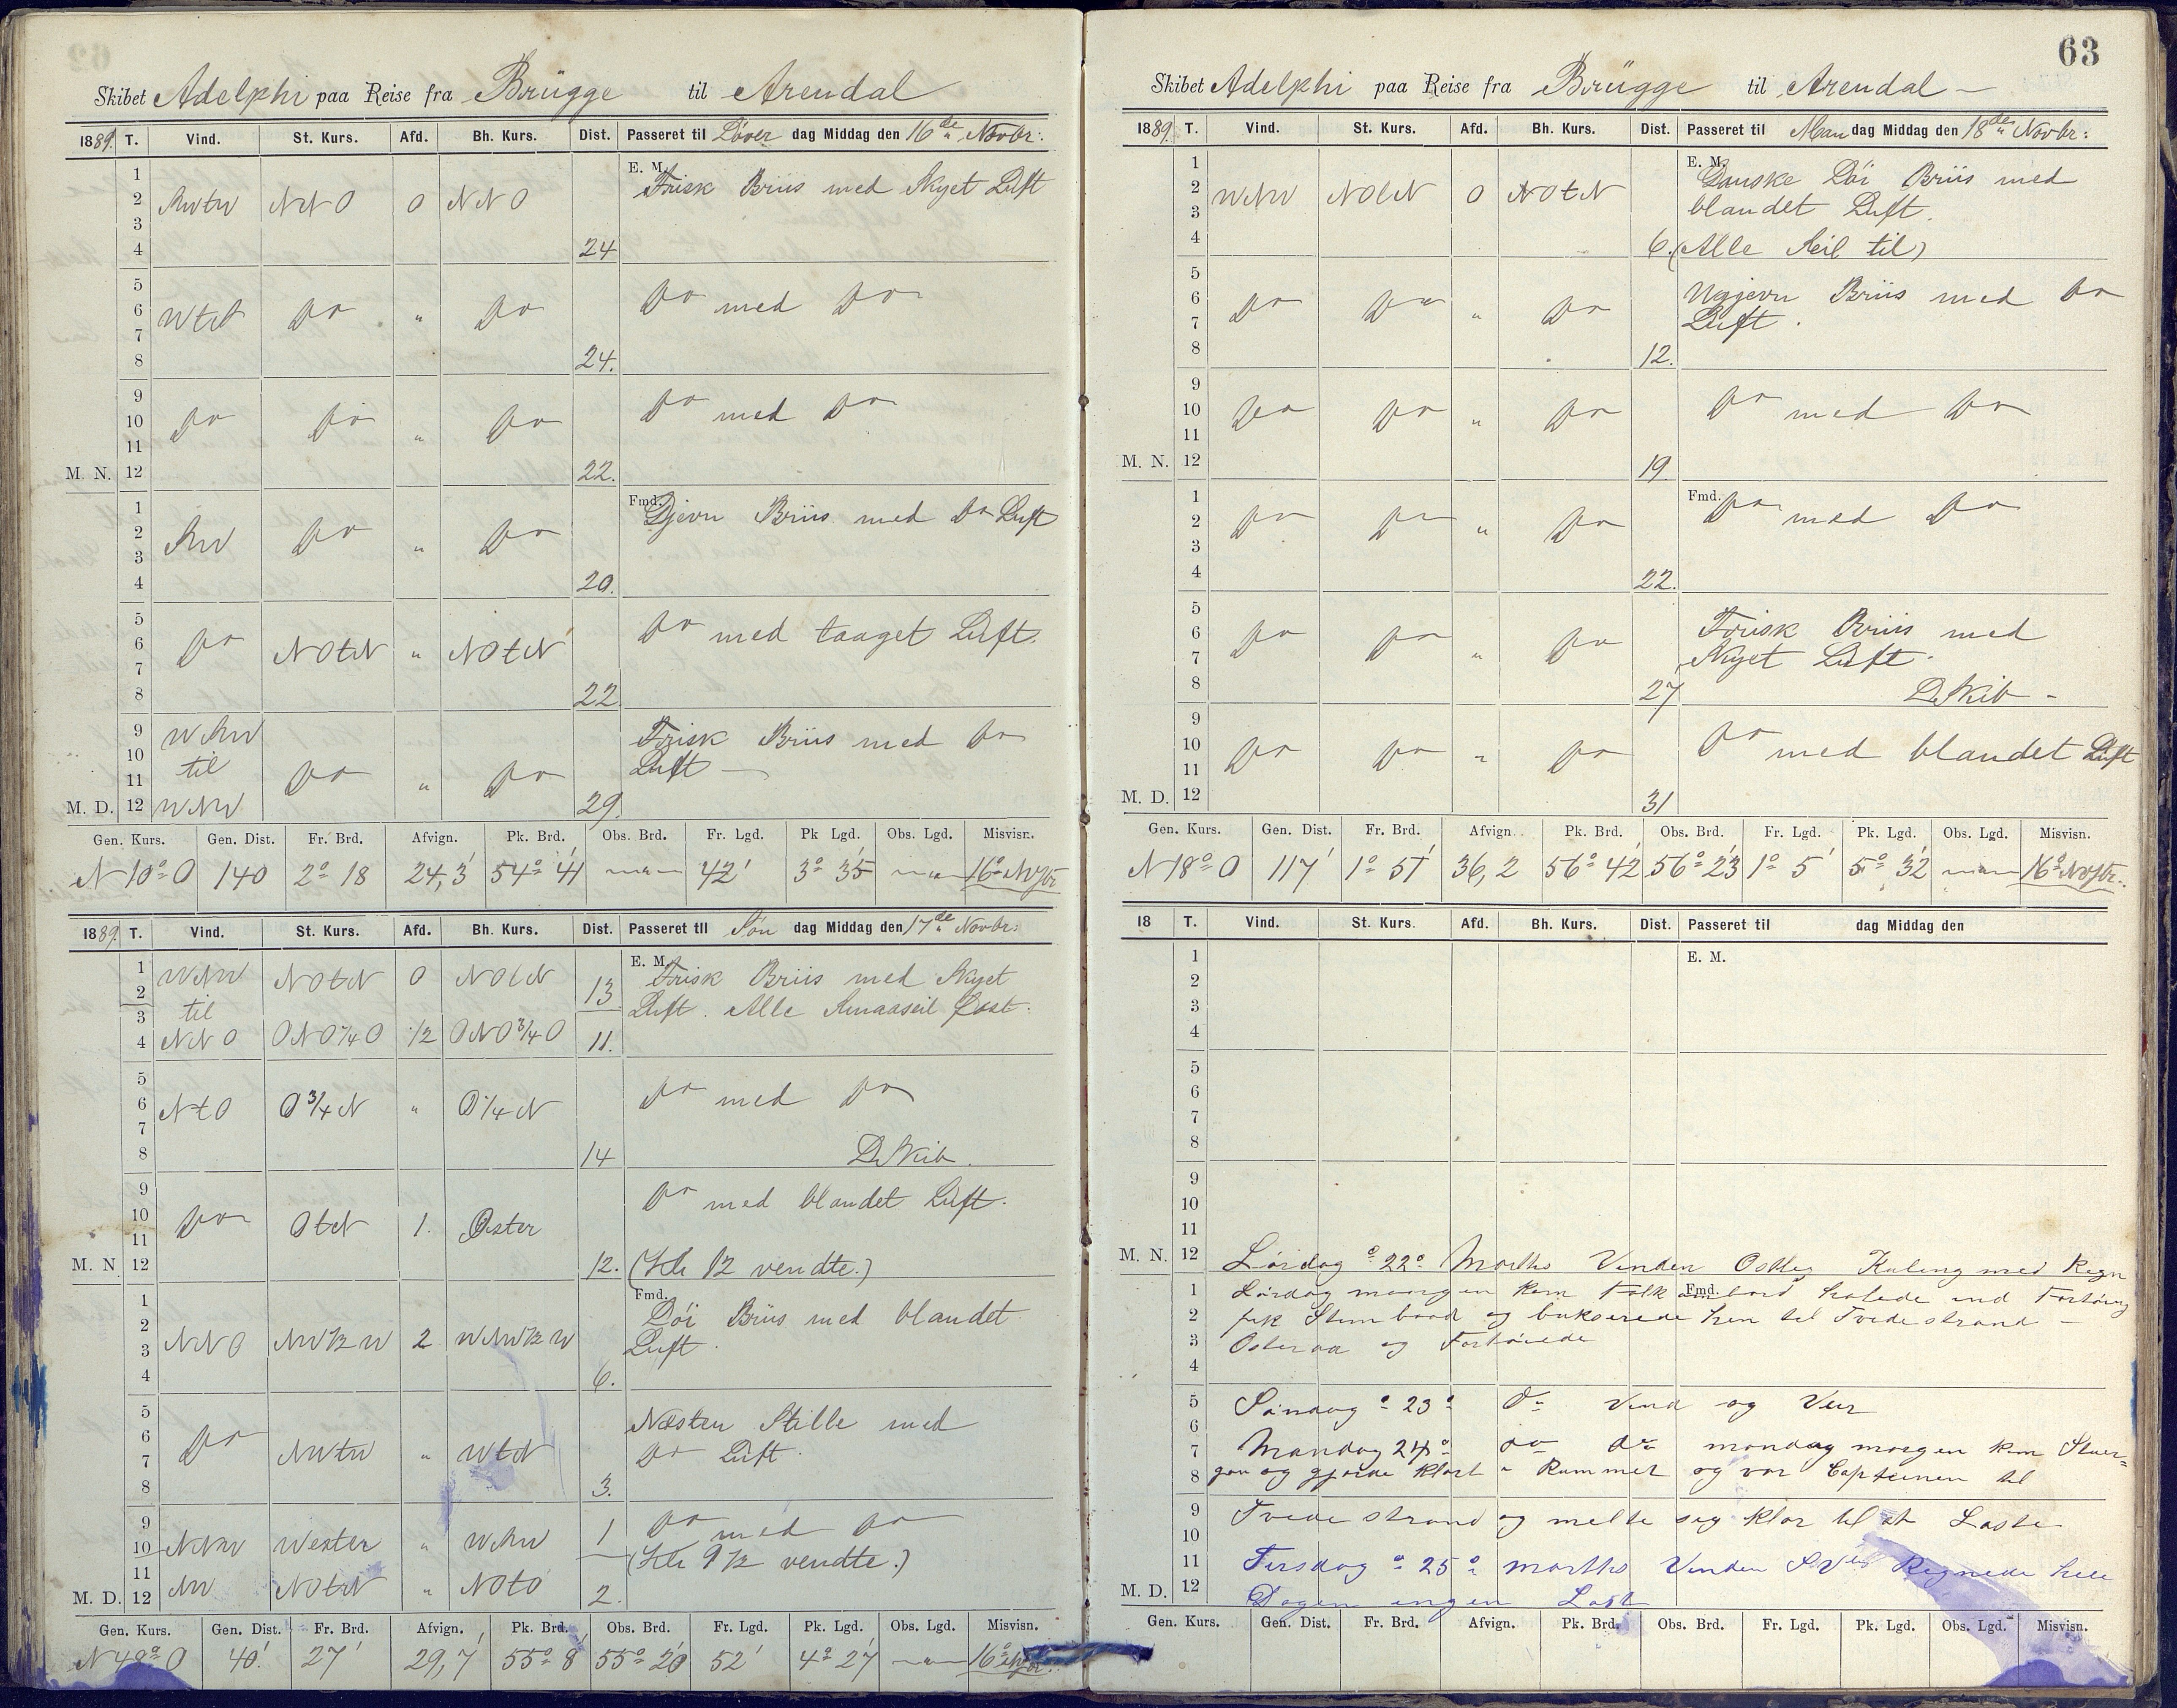 Skibet Adelphi paa Reise fra Brügge til Arendal
1889. T. Vind. St. Kurs. Afd. Bh. Kurs. Dist. Passeret til Löver dag Middag den 16de Novbr:
1 E. M. Frisk Briis med Skyet Luft
2 SWtW NNO 0 NNO
3
4 24
5
6 WtS Do " Do Do med Do
7
8 24.
9
10 Do Do " Do Do med Do
11
M. N. 12 22.
1 Fmd. Djevn Briis med Do Luft
2 SW Do " Do
3
4 20.
5
6 Do NOtN " NOtN Do med taaget Luft.
7
8 22
9 WSW Frisk Briis med Do
10 til Do " Do Luft
11
M. D. 12 WNW 29.
Gen. Kurs. Gen. Dist. Fr. Brd. Afvign. Pk. Brd. Obs. Brd. Fr. Lgd. Pk Lgd. Obs. Lgd. Misvisn.
N 10° O 140 2° 18 24,3' 54° 41' 42' 3° 35' 16°
1889. T. Vind. St. Kurs. Afd. Bh. Kurs. Dist. Passeret til Sön dag Middag den 17de Novbr:
1 WNW NOtN 0 NOtN E. M. Frisk Briis med Skyet
2 13
3 til Luft. Alle Smaaseil fast.
4 NNO ONO 1/4 O 1/2 ONO 3/4 O 11.
5
6 NtO O 3/4 N " O 1/4 N Do med Do
7
8 14
9
10 Do OtN 1. Öster Do med blandet Luft.
11
M. N 12 12. (Kl 12 vendte.)
1 Fmd. Löi Briis med blandet
2 NNO NW 1/2 W 2 WNW 1/2 W Luft.
3
4 6.
5 Næsten Stille med
6 Do NWtW " WtN Do Luft.
7
8 3.
9 NNW Wester " WSW 1 Do med Do
10 (Kl 9 1/2 vendte.)
11 NW NOtN " NOtO
M. D. 12 2.
Gen. Kurs. Gen. Dist. Fr. Brd. Afvign. Pk. Brd. Obs. Brd. Fr. Lgd. Pk. Lgd. Obs. Lgd. Misvisn.
N 48° O 40' 27' 29,7' 55° 8' 55° 20' 52' 4° 27' 16°
63
Skibet Adelphi paa Reise fra Brügge til Arendal
1889. T. Vind. St. Kurs. Afd. Bh. Kurs. Dist. Passeret til Man dag Middag den 18de Novbr:
1 E. M. Ganske Löi Briis med
2 WNW NOtN 0 NOtN blandet Luft.
3
4 6. (Alle Seil til)
5
6 Do Do " Do Ugjevn Briis med Do
7 Luft.
8 12.
9
10 Do Do " Do Do med Do
11
M. N. 12 19.
1 Fmd. Do med Do
2 Do Do " Do
3
4 22.
5
6 Do Do " Do Frisk Briis med
7 Skyet Luft.
8 27
9
10 Do Do " Do Do med blandet Luft
11
M. D. 12 31
Gen. Kurs. Gen. Dist. Fr. Brd. Afvign. Pk. Brd. Obs. Brd. Fr. Lgd. Pk. Lgd. Obs. Lgd. Misvisn.
N 18° O 117' 1° 51' 36,2 56° 42' 56° 23' 1° 5' 5° 32' 16°
18 T. Vind. St. Kurs. Afd. Bh. Kurs. Dist. Passeret til dag Middag den
1 E. M.
2
3
4
5
6
7
8
9
10
11
M. N. 12 Lördag 22 Marths Vinden Ostlig Kuling med Regn
1 Lördag morgen kom Folk ombord halede ind Fortöing
2 fik Stimbaad og bukserede hen til Tvedestrand
3 Osteraa og Fortöiede
4
5 Söndag 23 do Vind og Veir
6
7 Mandag 24 do do mandag morgen kom
8 og gjorde klart i Rummet og var Capteinen til
9 Tvedestrand og melte seg klar til at Laste
10
11 Tirsdag 25 marths Vinden Regnede hele
M. D. 12 Dagen ingen Last
Gen. Kurs. Gen. Dist. Fr. Brd. Afvign. Pk. Brd. Obs. Brd. Fr. Lgd. Pk. Lgd. Obs. Lgd. Misvisn.